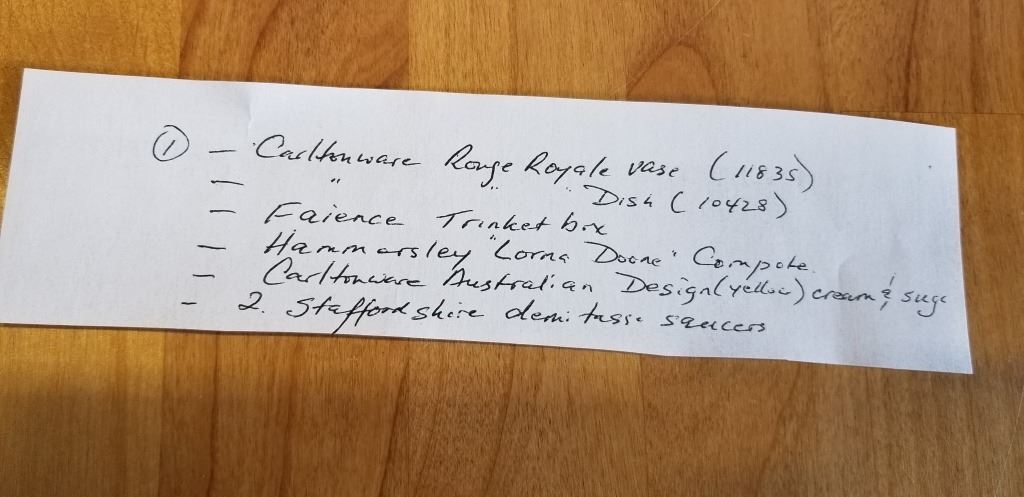 ① — Carltonware Rouge Royale vase (11835)
— " " " Dish (10428)
— Faience Trinket box
— Hammersley "Lorna Doone" Compote.
— Carltonware Australian Design (yellow) cream & suga
- 2. Staffordshire demitasse saucers